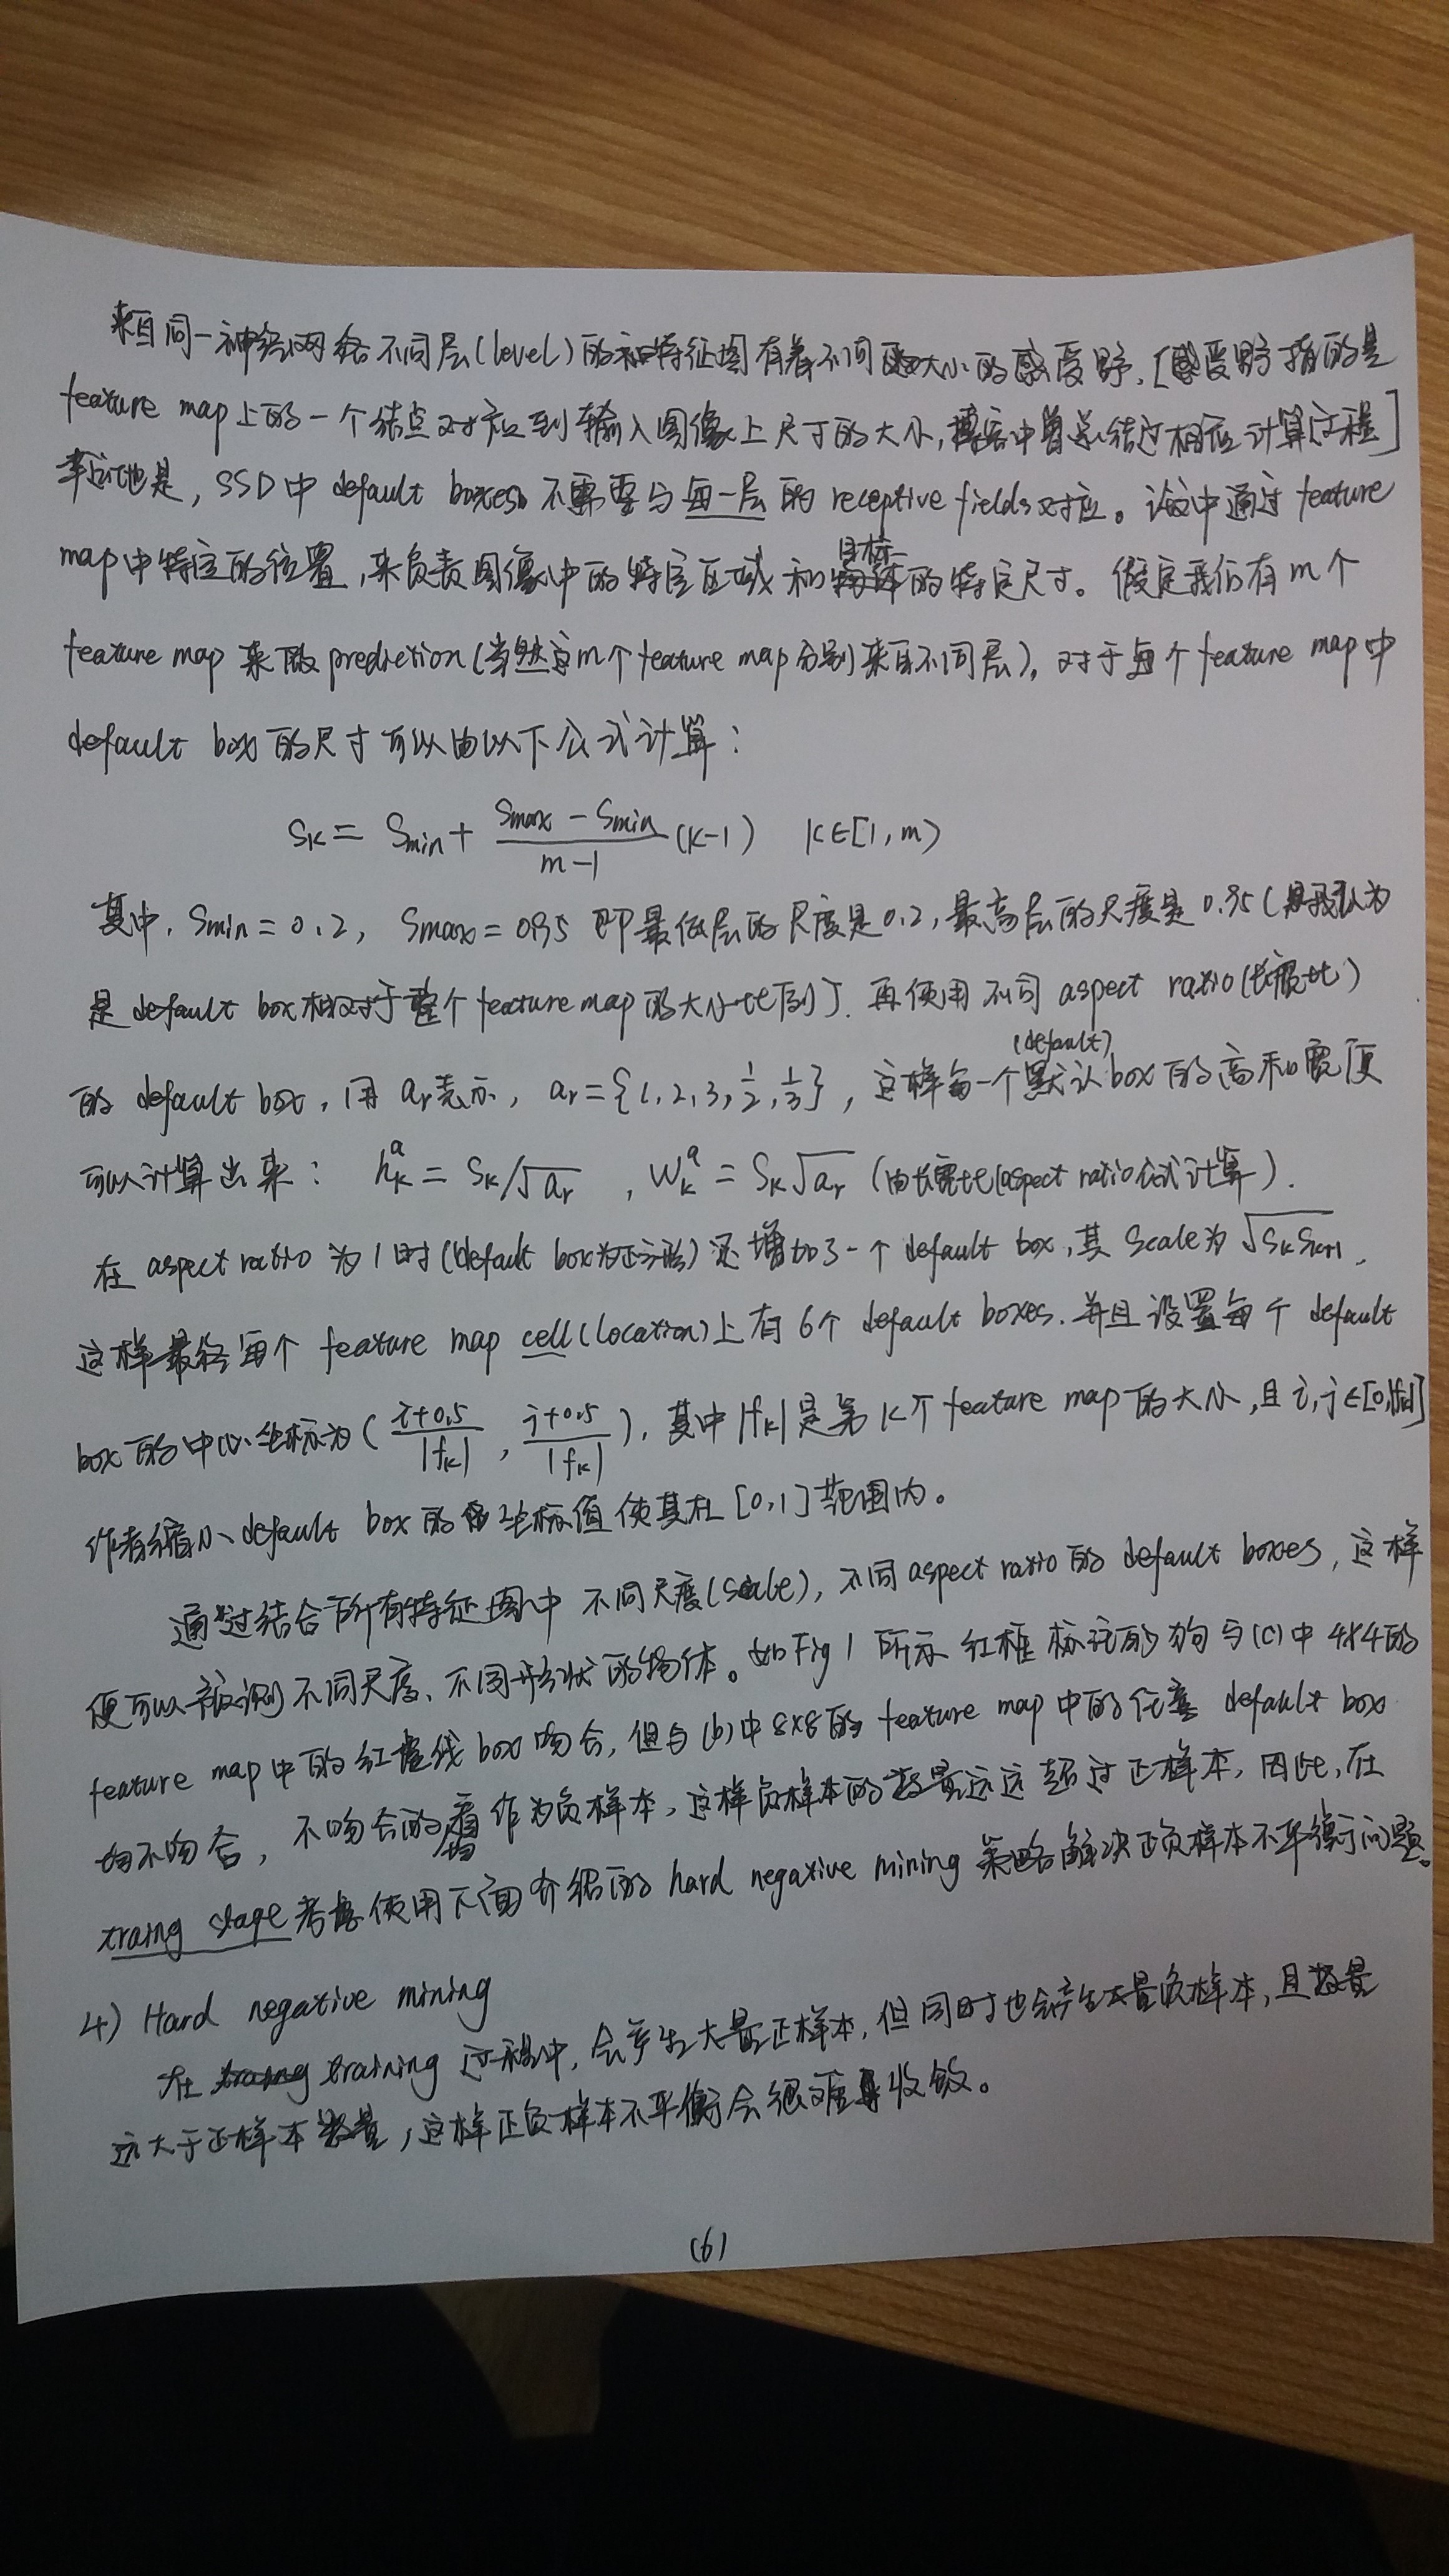 来自同一神经网络不同层(level)的特征图有着不同大小的感受野,[感受野指的是
feature map上的一个结点对应到输入图像上尺寸的大小,博客中曾总结过相应计算过程]
幸运地是, SSD中 default boxes 不需要与每一层的 receptive fields对应。论文中通过 feature
map中特定的位置,来负责图像中的特定区域和目标的特定尺寸。假定我们有m个
feature map 来做 prediction(当然这m个feature map分别来自不同层),对于每个feature map中
default box的尺寸可以由以下公式计算:
Sk = Smin + (Smax - Smin)/(m-1) (k-1) k∈[1,m)
其中, Smin = 0.2, Smax = 0.95 即最低层的尺度是0.2,最高层的尺度是0.95(我认为
是 default box相对于整个feature map的大小比例).再使用不同 aspect ratio(长宽比)
的 default box,用 ar表示, ar={1,2,3,1/2,1/3},这样每一个默认(default)box的高和宽便
可以计算出来: h_k^a = Sk/√ar , w_k^a = Sk√ar (由长宽比(aspect ratio公式计算).
在 aspect ratio 为1时(default box为正方形)还增加了一个 default box,其 Scale为 √SkSk+1.
这样最终每个 feature map cell(location)上有6个 default boxes.并且设置每个 default
box的中心坐标为( (i+0.5)/|fk| , (j+0.5)/|fk| ),其中|fk|是第k个feature map的大小,且i,j∈[0,|fk|]
作者缩小default box的坐标值使其在[0,1]范围内。
通过结合所有特征图中不同尺度(scale),不同aspect ratio的 default boxes,这样
便可以预测不同尺度、不同形状的物体。如Fig 1 所示 红框标记的狗与(c)中4x4的
feature map中的红虚线box吻合,但与(b)中8x8的 feature map中的任意 default box
均不吻合,不吻合的均作为负样本,这样负样本的数量远远超过正样本,因此,在
traing stage考虑使用下面介绍的 hard negative mining 策略解决正负样本不平衡问题。
4) Hard negative mining
在 training 过程中,会产生大量正样本,但同时也会产生大量负样本,且数量
远大于正样本数量,这样正负样本不平衡会很难收敛。
(6)